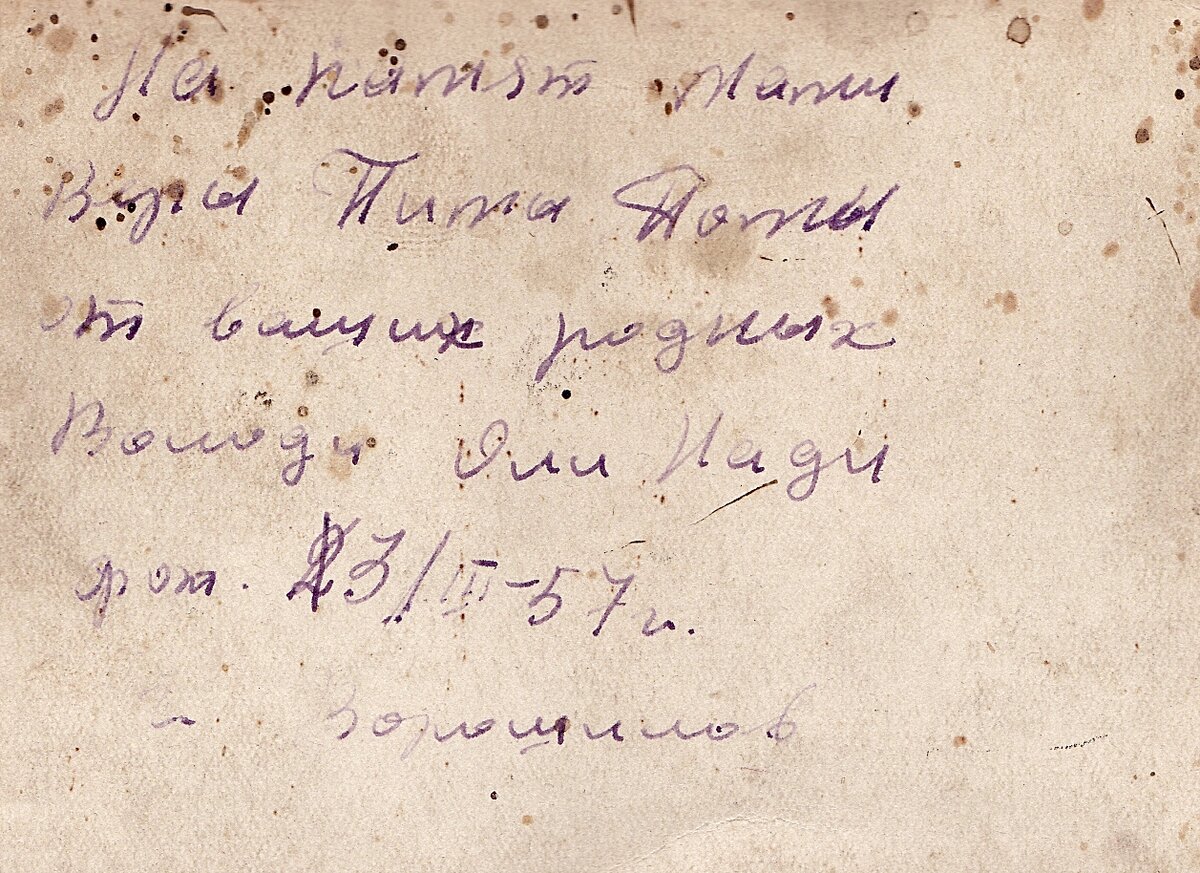 На памят Мами
Вера Тита Тома
от ваших родных
Володи Оли Нади
фот. 23/III-57 г.
г. Ворошилов